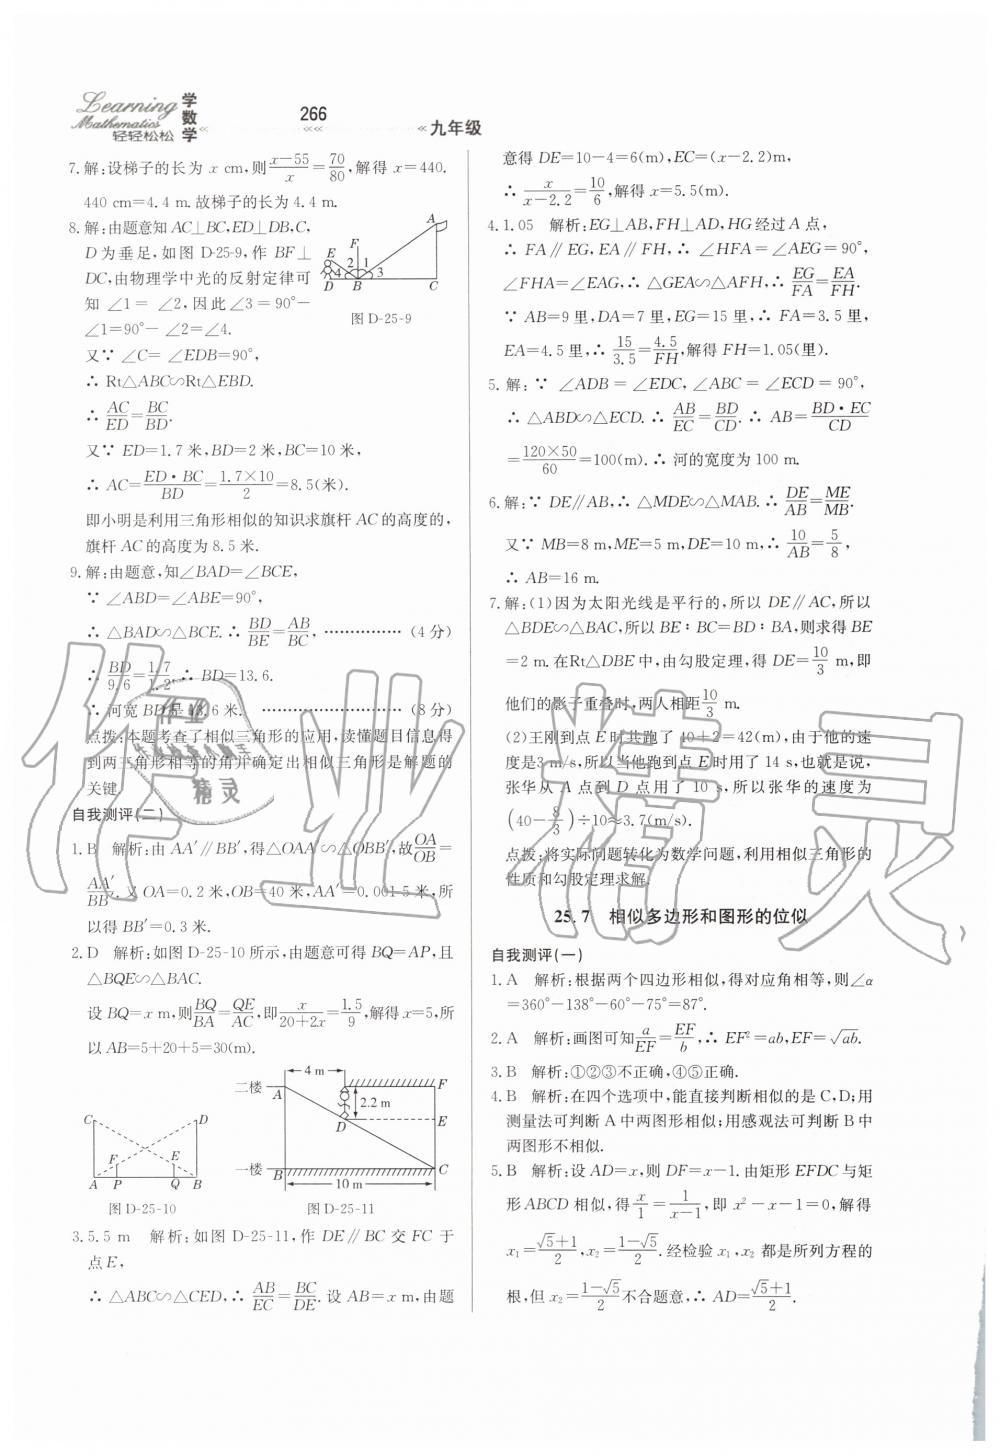 Learning
Mathematics
学数学
轻轻松松
266
九年级
7.解:设梯子的长为 x cm,则(x-55)/x=70/80,解得 x=440.
440 cm=4.4 m.故梯子的长为 4.4 m.
8.解:由题意知 AC⊥BC,ED⊥DB,C,
D 为垂足,如图 D-25-9,作 BF⊥
DC,由物理学中光的反射定律可
知 ∠1= ∠2,因此∠3=90°-
∠1=90°-∠2=∠4.
A
F
E
4 2 1 3
D B C
图 D-25-9
又∵ ∠C= ∠EDB=90°,
∴ Rt△ABC∽Rt△EBD.
∴ AC/ED=BC/BD.
又∵ ED=1.7 米,BD=2 米,BC=10 米,
∴ AC=ED·BC/BD=1.7×10/2=8.5(米).
即小明是利用三角形相似的知识求旗杆 AC 的高度的,
旗杆 AC 的高度为 8.5 米.
9.解:由题意,知∠BAD=∠BCE,
∵ ∠ABD=∠ABE=90°,
∴ △BAD∽△BCE.∴ BD/BE=AB/BC, …………… (4 分)
∴ BD/9.6=1.7/1.2,∴ BD=13.6.
∴ 河宽 BD 是 13.6 米. ………………………… (8 分)
点拨:本题考查了相似三角形的应用,读懂题目信息得
到两三角形相等的角并确定出相似三角形是解题的
关键.
自我测评(二)
1.B 解析:由 AA′∥BB′,得△OAA′∽△OBB′,故OA/OB=
AA′/BB′.又 OA=0.2 米,OB=40 米,AA′=0.001 5 米,所
以得 BB′=0.3 米.
2.D 解析:如图 D-25-10 所示,由题意可得 BQ=AP,且
△BQE∽△BAC.
设 BQ=x m,则BQ/BA=QE/AC,即x/(20+2x)=1.5/9,解得 x=5,所
以 AB=5+20+5=30(m).
C D
F E
A P Q B
图 D-25-10
4 m
二楼 A F
2.2 m
D E
一楼 B C
10 m
图 D-25-11
3.5.5 m 解析:如图 D-25-11,作 DE∥BC 交 FC 于
点 E,
∴ △ABC∽△CED,∴ AB/EC=BC/DE.设 AB=x m,由题
意得 DE=10-4=6(m),EC=(x-2.2)m,
∴ x/(x-2.2)=10/6,解得 x=5.5(m).
4.1.05 解析:EG⊥AB,FH⊥AD,HG 经过 A 点,
∴ FA∥EG,EA∥FH,∴ ∠HFA=∠AEG=90°,
∠FHA=∠EAG,∴ △GEA∽△AFH,∴ EG/FA=EA/FH.
∵ AB=9 里,DA=7 里,EG=15 里,∴ FA=3.5 里,
EA=4.5 里,∴ 15/3.5=4.5/FH,解得 FH=1.05(里).
5.解:∵ ∠ADB = ∠EDC,∠ABC = ∠ECD = 90°,
∴ △ABD∽△ECD.∴ AB/EC=BD/CD.∴ AB=BD·EC/CD
=120×50/60=100(m).∴ 河的宽度为 100 m.
6.解:∵ DE∥AB,∴ △MDE∽△MAB.∴ DE/AB=ME/MB.
又∵ MB=8 m,ME=5 m,DE=10 m,∴ 10/AB=5/8,
∴ AB=16 m.
7.解:(1)因为太阳光线是平行的,所以 DE∥AC,所以
△BDE∽△BAC,所以 BE∶BC=BD∶BA,则求得 BE
=2 m.在Rt△DBE 中,由勾股定理,得 DE=10/3 m,即
他们的影子重叠时,两人相距10/3 m.
(2)王刚到点 E 时共跑了 40+2=42(m),由于他的速
度是3 m/s,所以当他跑到点 E 时用了 14 s,也就是说,
张华从 A 点到 D 点用了 10 s,所以张华的速度为
(40-8/3)÷10≈3.7(m/s).
点拨:将实际问题转化为数学问题,利用相似三角形的
性质和勾股定理求解.
25.7 相似多边形和图形的位似
自我测评(一)
1.A 解析:根据两个四边形相似,得对应角相等,则∠α
=360°-138°-60°-75°=87°.
2.A 解析:画图可知a/EF=EF/b,∴ EF²=ab,EF=√ab.
3.B 解析:①②③不正确,④⑤正确.
4.B 解析:在四个选项中,能直接判断相似的是 C,D;用
测量法可判断 A 中两图形相似;用感观法可判断 B 中
两图形不相似.
5.B 解析:设 AD=x,则 DF=x-1.由矩形 EFDC 与矩
形 ABCD 相似,得x/1=1/(x-1),即 x²-x-1=0,解得
x₁=(√5+1)/2,x₂=(1-√5)/2.经检验 x₁,x₂ 都是所列方程的
根,但 x₂=(1-√5)/2不合题意,∴ AD=(√5+1)/2.
作业精灵